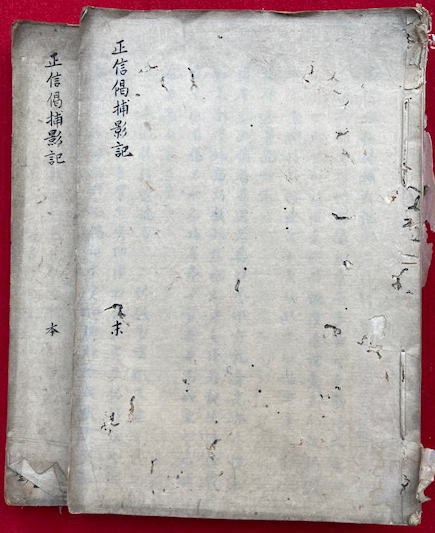 正信偈捕影記
末
正信偈捕影記
本